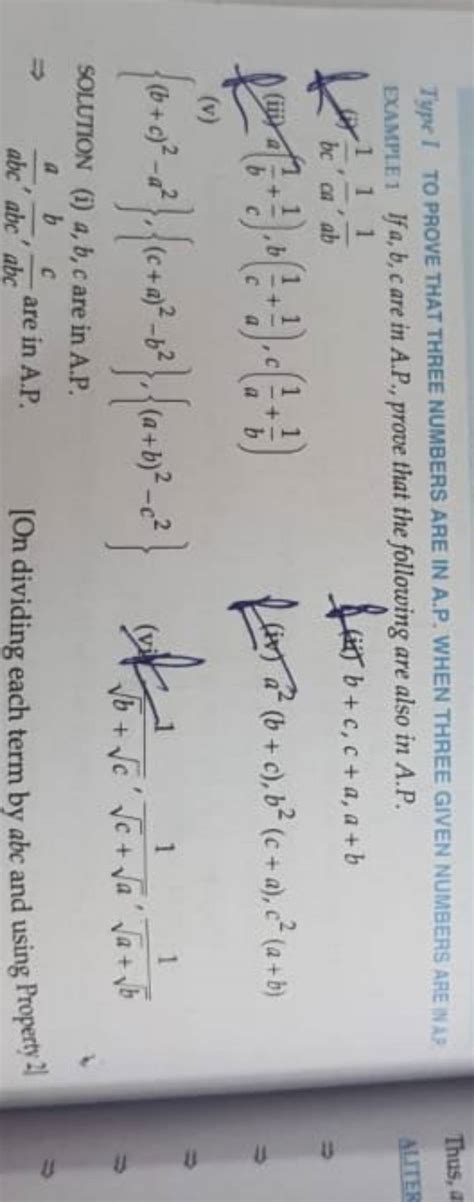 Type I TO PROVE THAT THREE NUMBERS ARE IN A.P. WHEN THREE GIVEN NUMBERS ARE IN A.P.
EXAMPLE 1 If a, b, c are in A.P., prove that the following are also in A.P.
(i) 1/bc, 1/ca, 1/ab (ii) b + c, c + a, a + b
(iii) a(1/b + 1/c), b(1/c + 1/a), c(1/a + 1/b) (iv) a²(b + c), b²(c + a), c²(a + b)
(v) {(b + c)² – a²}, {(c + a)² – b²}, {(a + b)² – c²} (vi) 1/(√b + √c), 1/(√c + √a), 1/(√a + √b)
SOLUTION (i) a, b, c are in A.P.
⇒ a/abc, b/abc, c/abc are in A.P. [On dividing each term by abc and using Property 2]
Thus,
ALITER
⇒
⇒
⇒
⇒
⇒